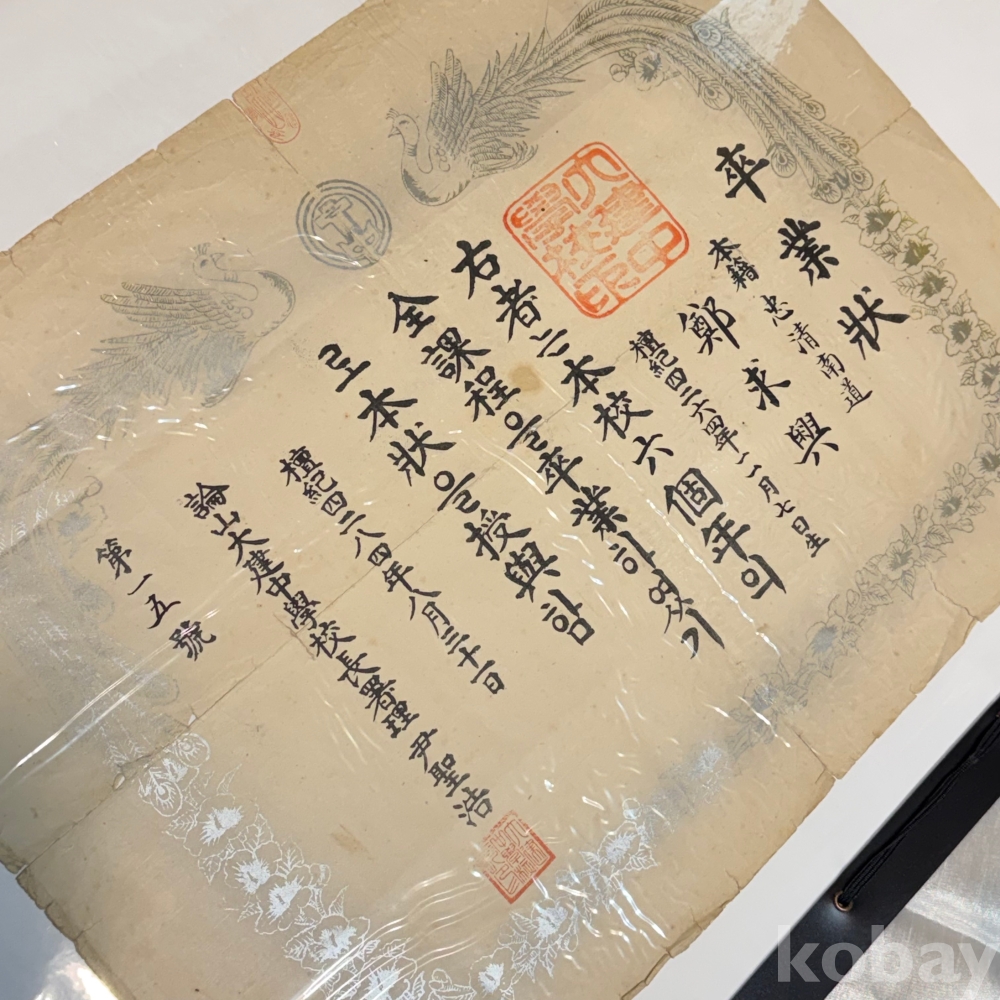 卒業狀
本籍 忠淸南道
鄭求興
檀紀四二六四年一一月七日生
右者는本校六個年의
全課程을卒業하였기
로本狀을授與함
檀紀四二八四年八月三十一日
論山大建中學校長署理 尹聖浩
第一五號
kobay